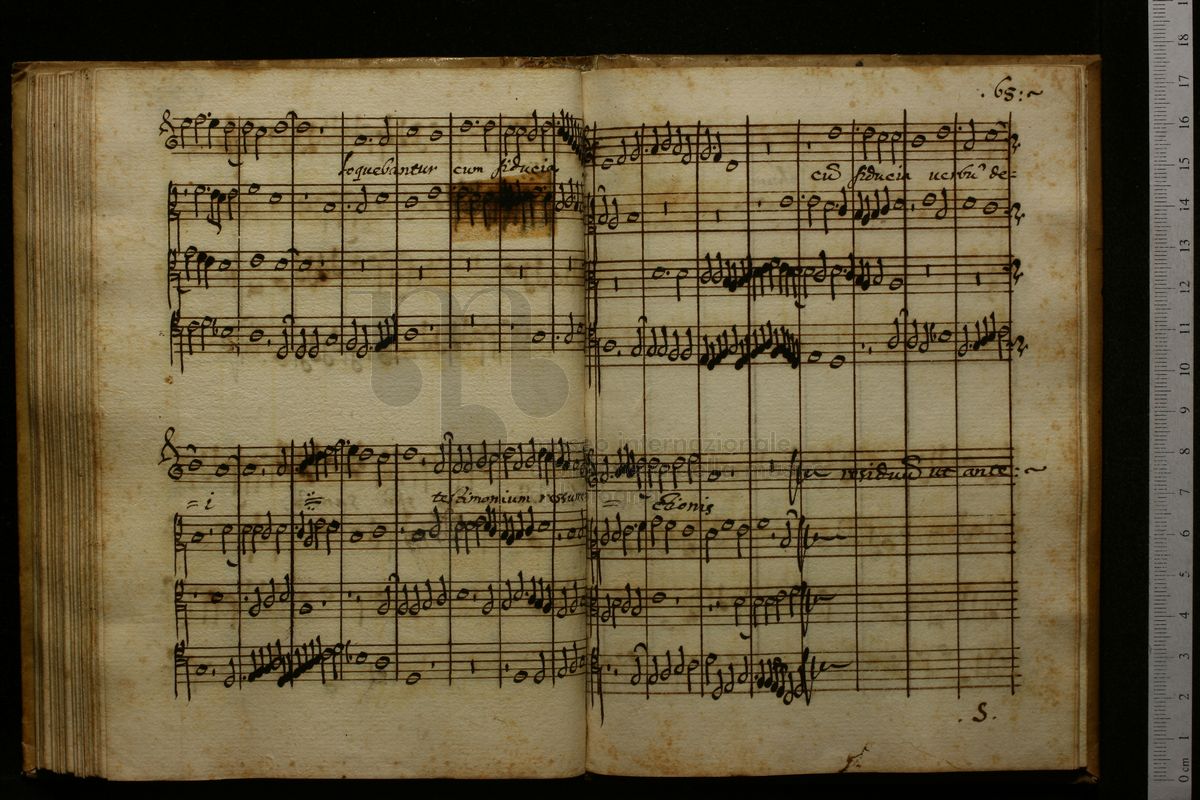 . 65 : ~
loquebantur cum fiducia
cū fiducia verbū de=
= i
testimonium resurre=
ctionis
residuū ut ante : ~
. S .
museo internazionale
0 cm 1 2 3 4 5 6 7 8 9 10 11 12 13 14 15 16 17 18